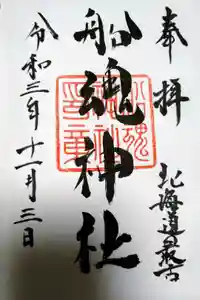 奉拝
北海道最古
船魂神社
令和三年十一月三日